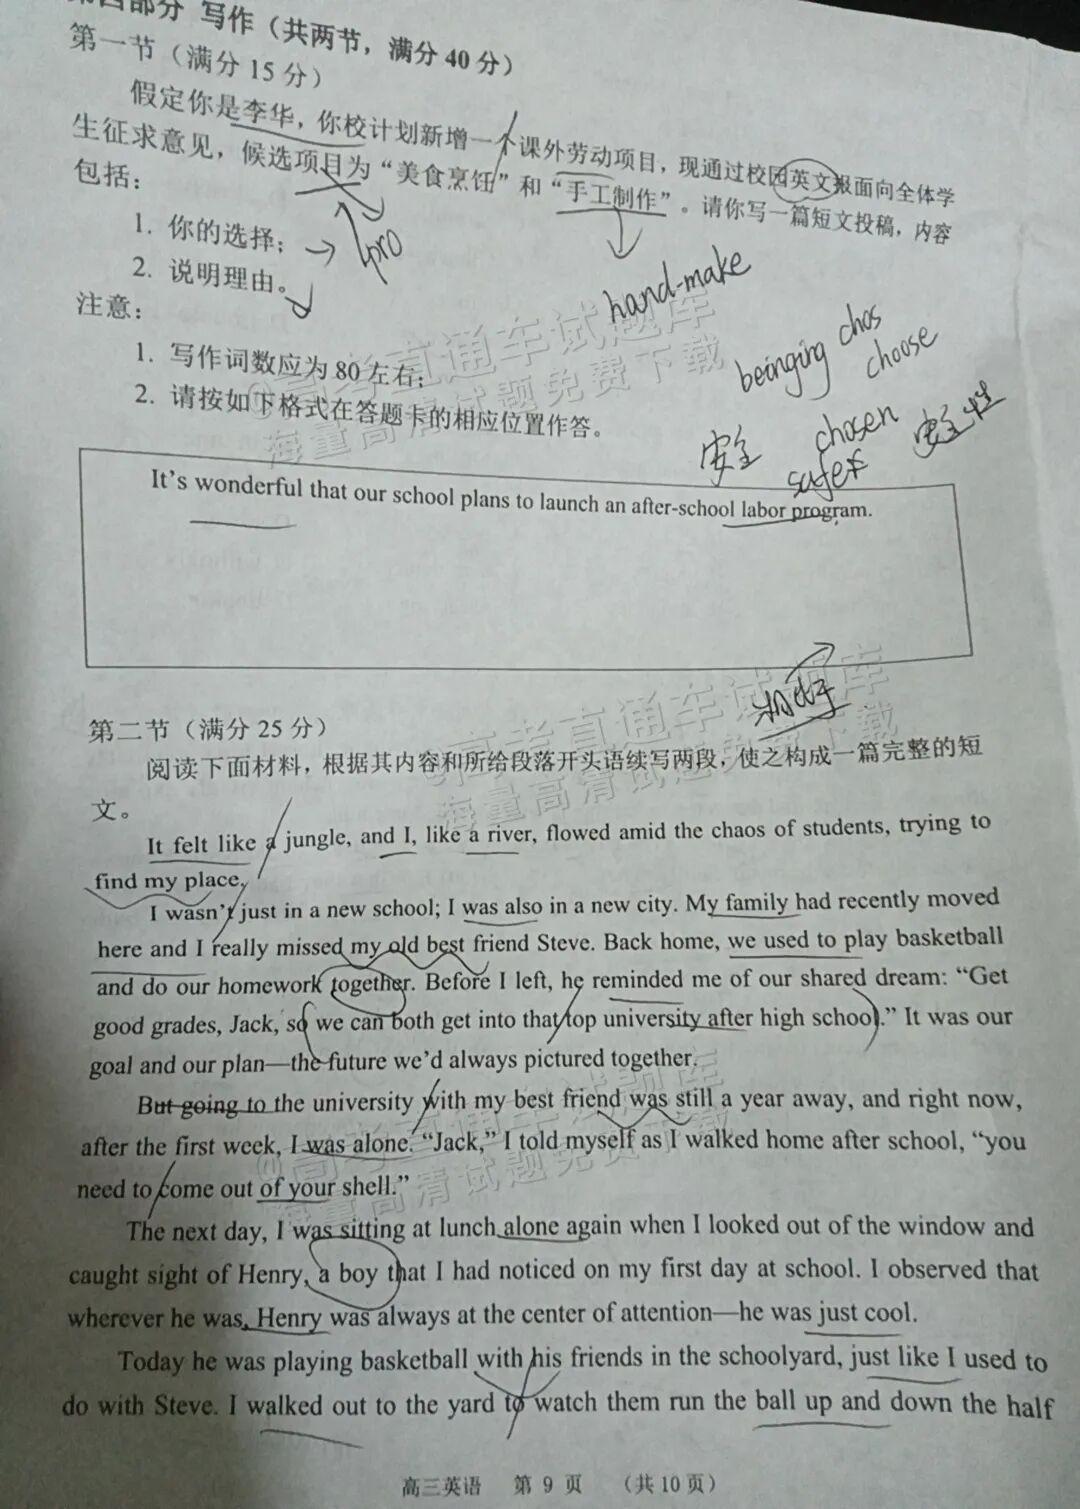 第四部分 写作（共两节，满分40分）
第一节（满分15分）
假定你是李华，你校计划新增一个课外劳动项目，现通过校园英文报面向全体学
生征求意见，候选项目为“美食烹饪”和“手工制作”。请你写一篇短文投稿，内容
包括：
1. 你的选择；
2. 说明理由。
pro
hand-make
注意：
1. 写作词数应为80左右；
2. 请按如下格式在答题卡的相应位置作答。
chos
choose
chosen
安全
安全性
@高考直通车试题库
海量高清试题免费下载
It's wonderful that our school plans to launch an after-school labor program.
第二节（满分25分）
阅读下面材料，根据其内容和所给段落开头语续写两段，使之构成一篇完整的短
文。
@高考直通车试题库
海量高清试题免费下载
It felt like a jungle, and I, like a river, flowed amid the chaos of students, trying to
find my place.
I wasn't just in a new school; I was also in a new city. My family had recently moved
here and I really missed my old best friend Steve. Back home, we used to play basketball
and do our homework together. Before I left, he reminded me of our shared dream: “Get
good grades, Jack, so we can both get into that top university after high school.” It was our
goal and our plan—the future we'd always pictured together.
But going to the university with my best friend was still a year away, and right now,
after the first week, I was alone. “Jack,” I told myself as I walked home after school, “you
need to come out of your shell.”
@高考直通车试题库
海量高清试题免费下载
The next day, I was sitting at lunch alone again when I looked out of the window and
caught sight of Henry, a boy that I had noticed on my first day at school. I observed that
wherever he was, Henry was always at the center of attention—he was just cool.
Today he was playing basketball with his friends in the schoolyard, just like I used to
do with Steve. I walked out to the yard to watch them run the ball up and down the half
高三英语 第 9 页 （共10页）